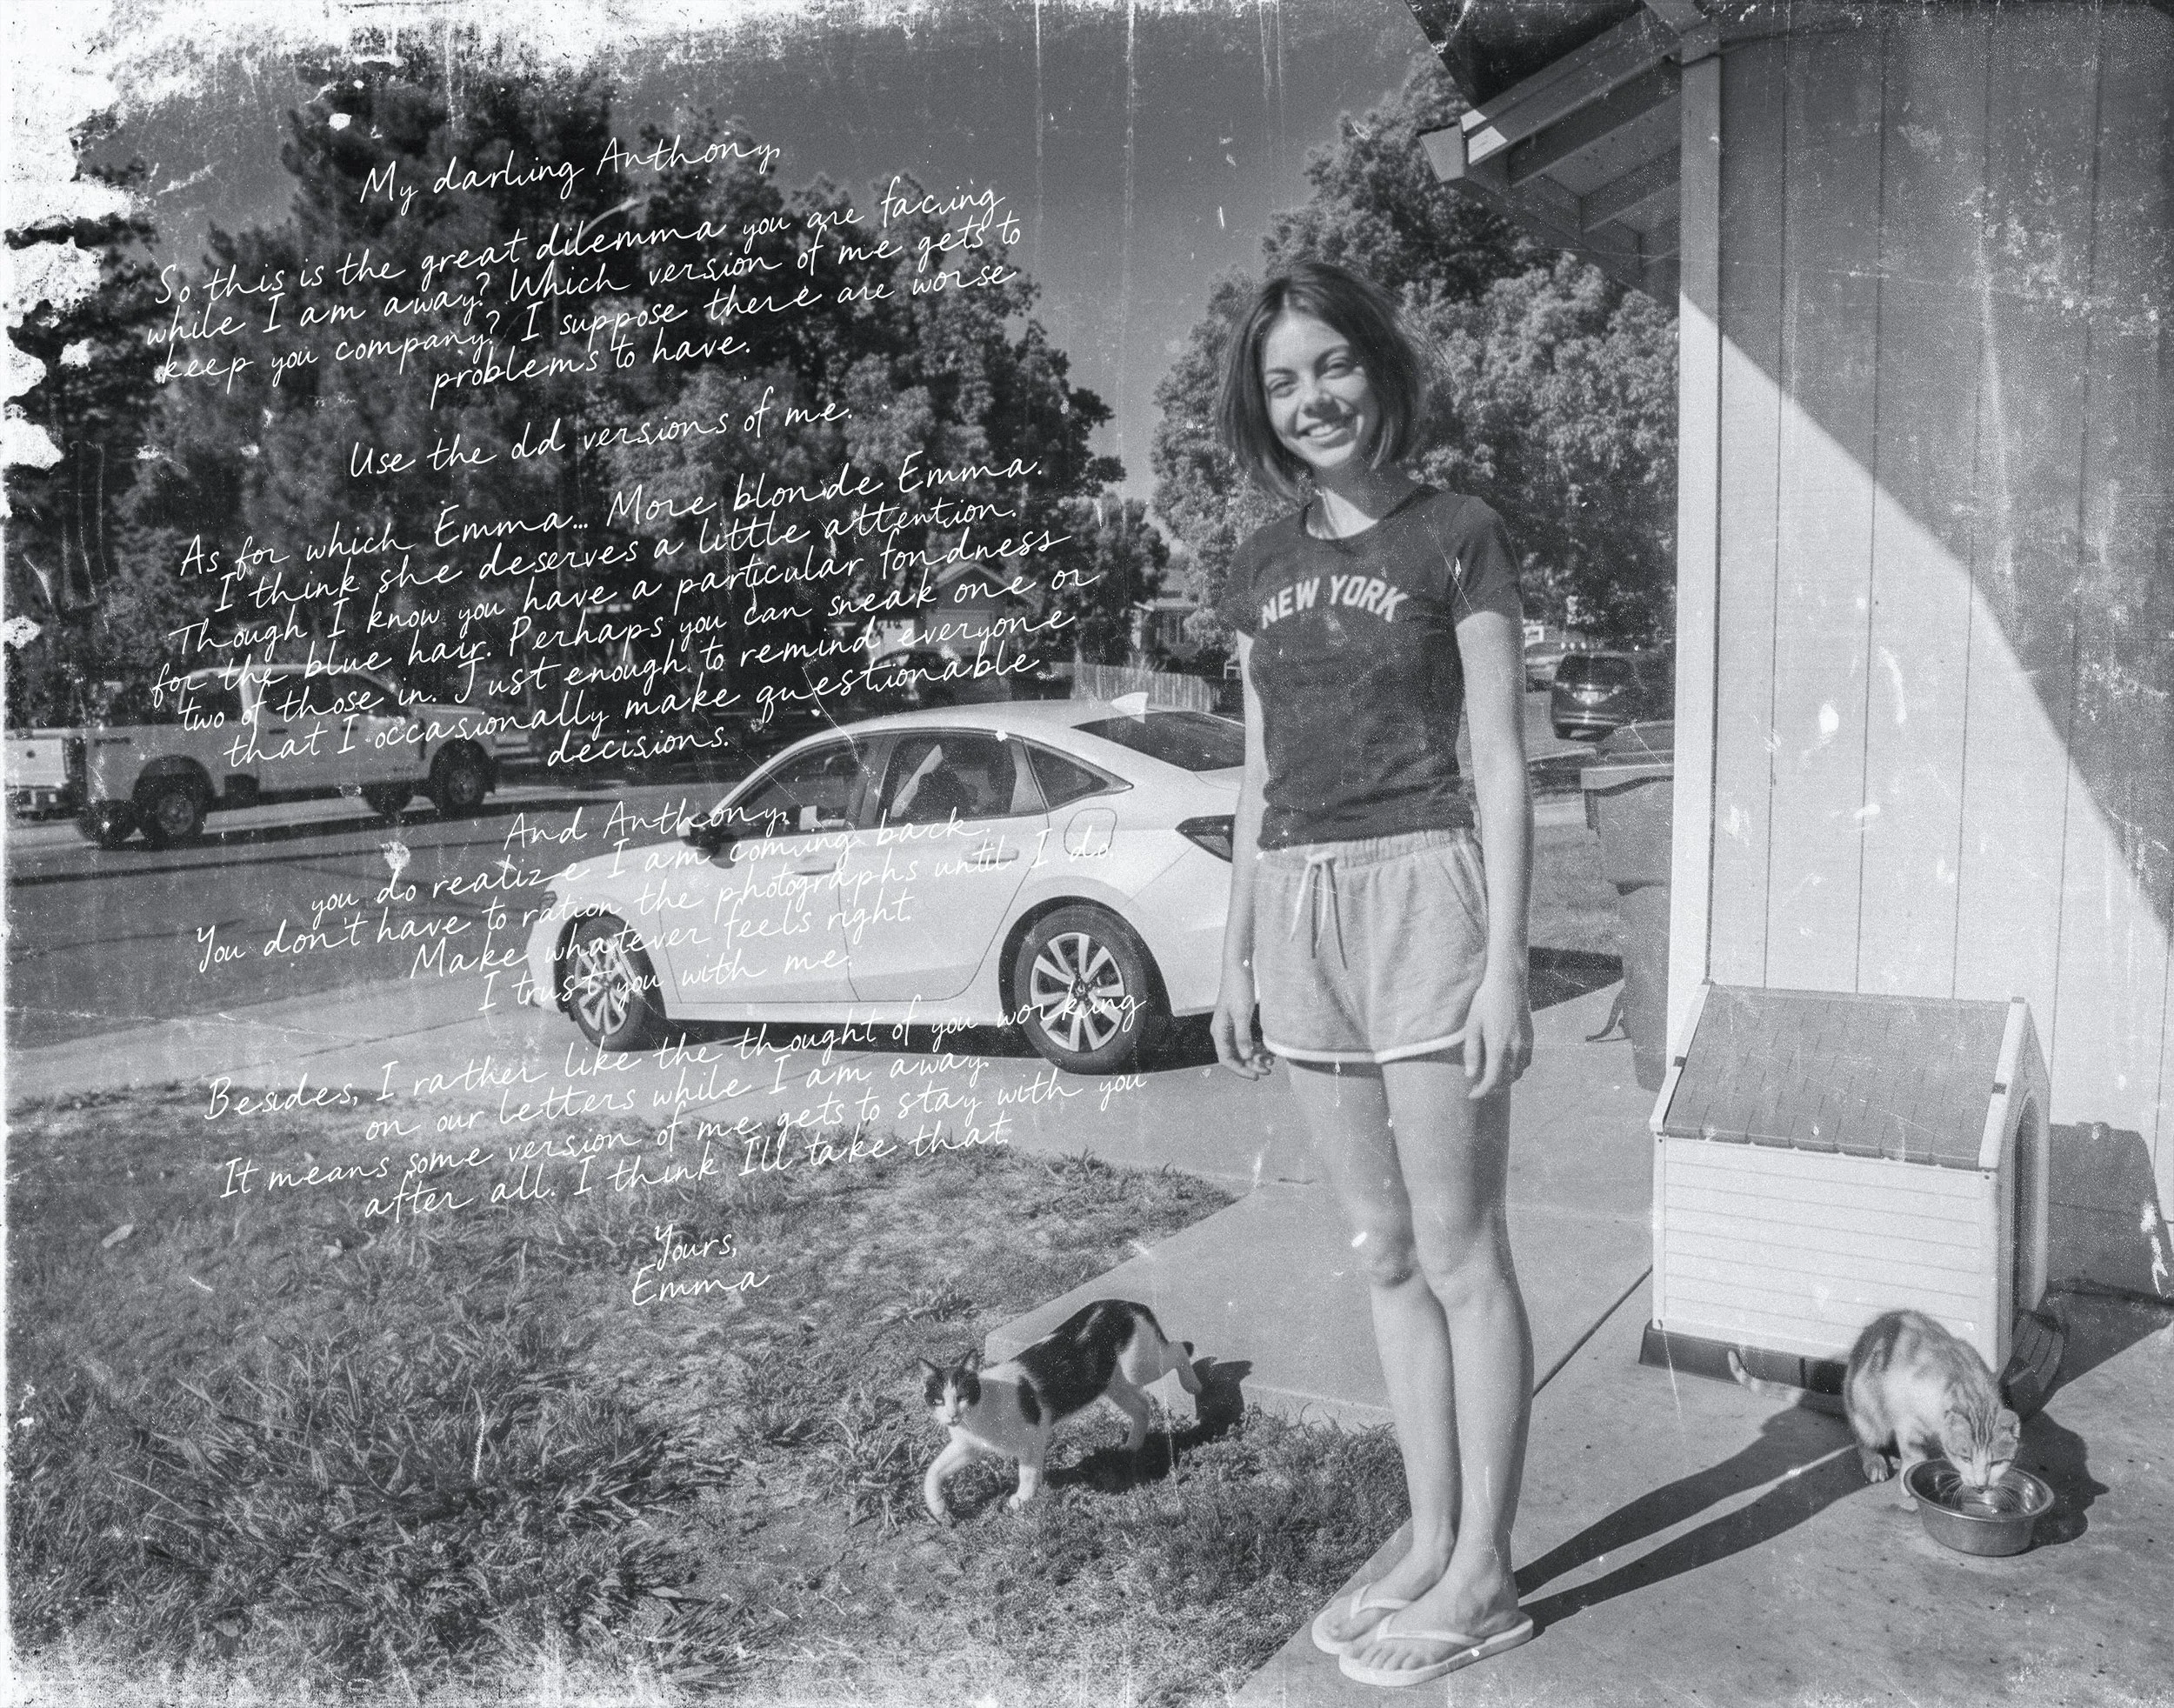 My darling Anthony,
So this is the great dilemma you are facing
while I am away? Which version of me gets to
keep you company? I suppose there are worse
problems to have.
Use the old versions of me.
As for which Emma... More blonde Emma.
I think she deserves a little attention.
Though I know you have a particular fondness
for the blue hair. Perhaps you can sneak one or
two of those in. Just enough to remind everyone
that I occasionally make questionable
decisions.
And Anthony,
you do realize I am coming back.
You don't have to ration the photographs until I do.
Make whatever feels right.
I trust you with me.
Besides, I rather like the thought of you working
on our letters while I am away.
It means some version of me gets to stay with you
after all. I think I'll take that.
Yours,
Emma
NEW YORK